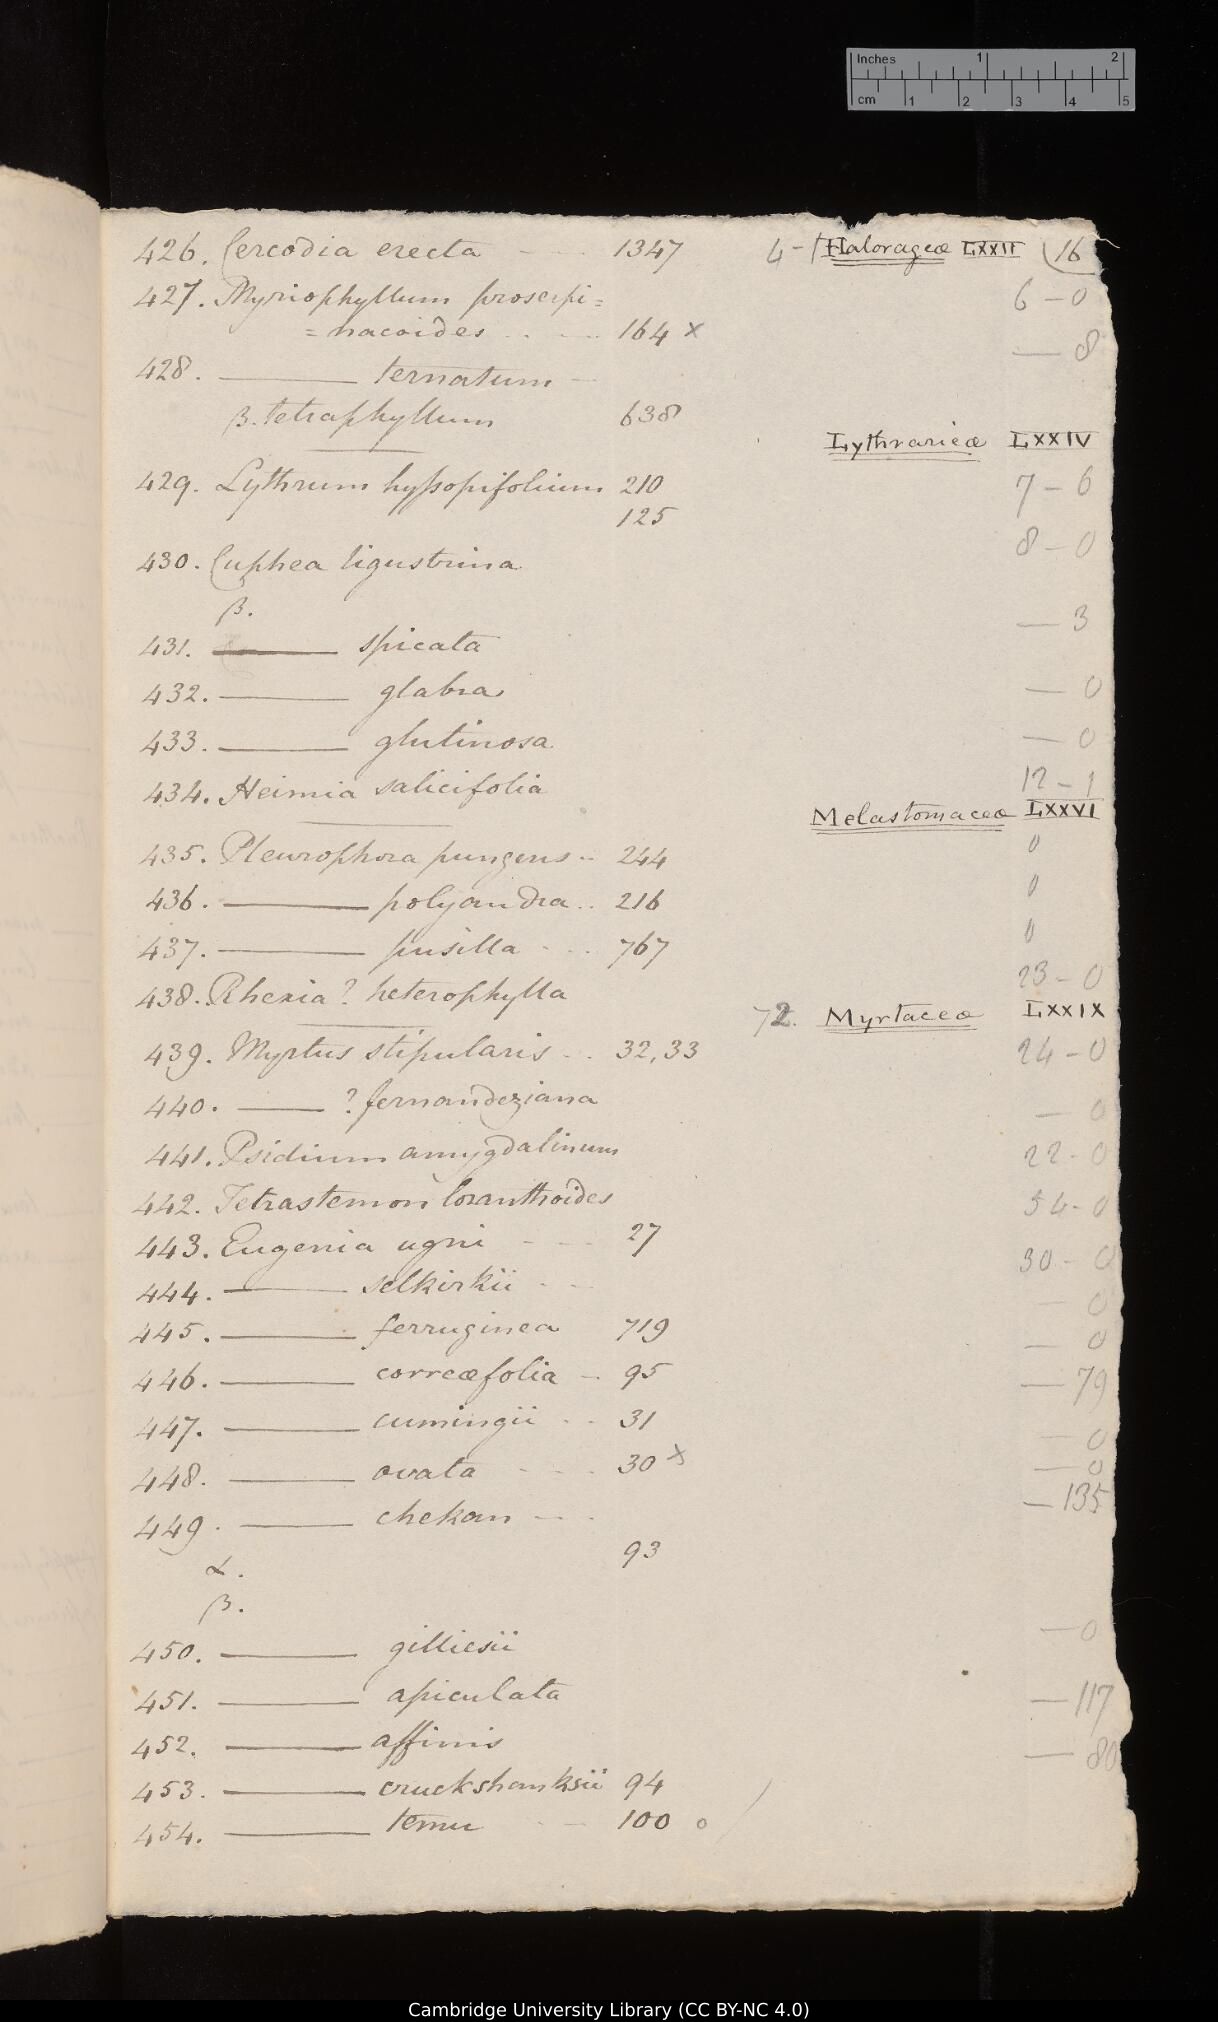 Inches 1 2
cm 1 2 3 4 5
426. Cercodia erecta - - - 1347 4 - Halorageæ LXXII 16
427. Myriophyllum proserpi= 6 - 0
= nacoides . . - . . . 164 x — 8
428. ——— ternatum -
β. tetraphyllum 638
Lythrarieæ LXXIV
429. Lythrum hyssopifolium 210 7 - 6
125
430. Cuphea ligustrina 8 - 0
β.
431. ——— spicata — 3
432. ——— glabra — 0
433. ——— glutinosa — 0
434. Heimia salicifolia 12 - 1
Melastomaceæ LXXVI
435. Pleurophora pungens - .. 244 0
436. ——— polyandra .. 216 0
437. ——— pusilla - . . 767 0
438. Rhexia? heterophylla 23 - 0
72. Myrtaceæ LXXIX
439. Myrtus stipularis - . . 32, 33 24 - 0
440. ——— ? fernandeziana — 0
441. Psidium amygdalinum 22 - 0
442. Tetrastemon loranthoides 54 - 0
443. Eugenia ugni - - - 27 30 - 0
444. ——— selkirkii - - - — 0
445. ——— ferruginea 719 — 0
446. ——— correæfolia - . 95 — 79
447. ——— cumingii - . . 31 — 0
448. ——— ovata - - - . 30 x — 0
449. ——— chekan - - . — 135
93
α.
β.
450. ——— gilliesii — 0
451. ——— apiculata — 117
452. ——— affinis — 80
453. ——— cruckshanksii 94
454. ——— temu - - 100 o
Cambridge University Library (CC BY-NC 4.0)